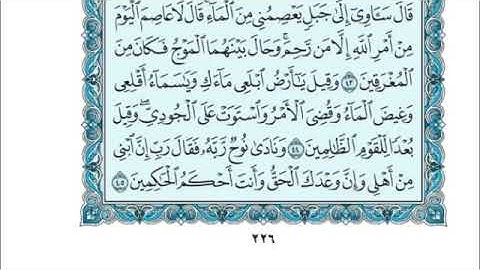 قَالَ سَـَٔاوِىٓ إِلَىٰ جَبَلٍ يَعْصِمُنِى مِنَ ٱلْمَآءِ قَالَ لَا عَاصِمَ ٱلْيَوْمَ
مِنْ أَمْرِ ٱللَّهِ إِلَّا مَن رَّحِمَ وَحَالَ بَيْنَهُمَا ٱلْمَوْجُ فَكَانَ مِنَ
ٱلْمُغْرَقِينَ ٤٣ وَقِيلَ يَٰٓأَرْضُ ٱبْلَعِى مَآءَكِ وَيَٰسَمَآءُ أَقْلِعِى
وَغِيضَ ٱلْمَآءُ وَقُضِىَ ٱلْأَمْرُ وَٱسْتَوَتْ عَلَى ٱلْجُودِىِّ وَقِيلَ
بُعْدًا لِّلْقَوْمِ ٱلظَّٰلِمِينَ ٤٤ وَنَادَىٰ نُوحٌ رَّبَّهُۥ فَقَالَ رَبِّ إِنَّ ٱبْنِى
مِنْ أَهْلِى وَإِنَّ وَعْدَكَ ٱلْحَقُّ وَأَنتَ أَحْكَمُ ٱلْحَٰكِمِينَ ٤٥
٢٢٦